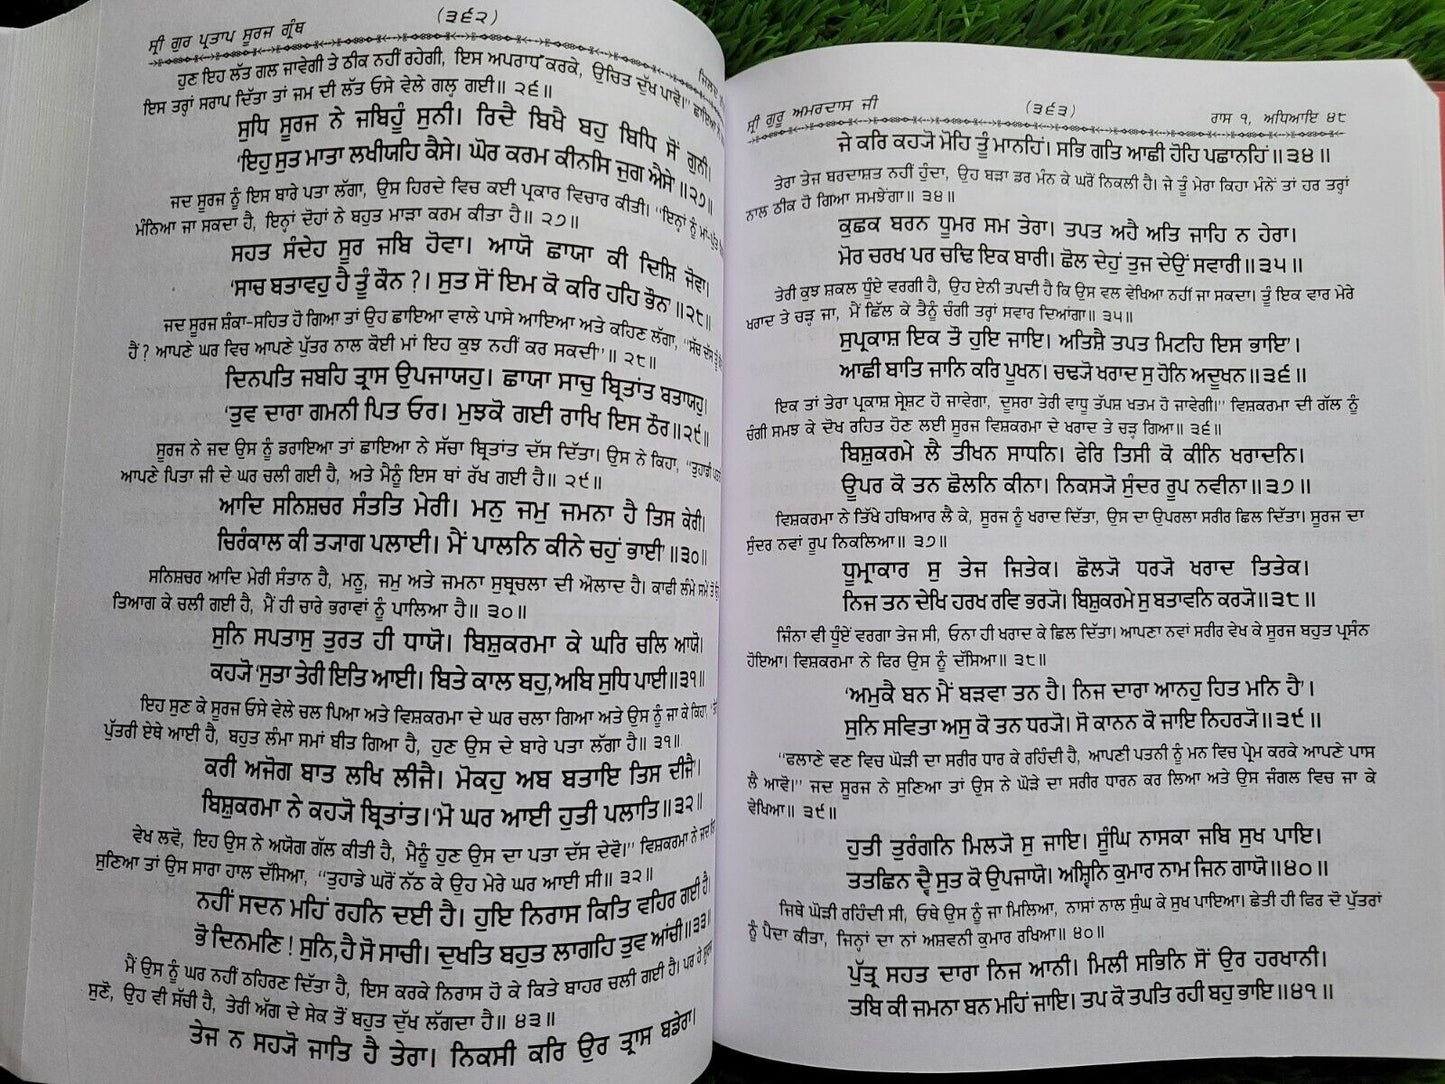 (੩੬੨)
ਸ੍ਰੀ ਗੁਰ ਪ੍ਰਤਾਪ ਸੂਰਜ ਗ੍ਰੰਥ
ਹੁਣ ਇਹ ਲੱਤ ਗਲ ਜਾਵੇਗੀ ਤੇ ਠੀਕ ਨਹੀਂ ਰਹੇਗੀ, ਇਸ ਅਪਰਾਧ ਕਰਕੇ, ਉਚਿਤ ਦੁੱਖ ਪਾਵੋ।” ਛਾਇਆ ਨੇ
ਇਸ ਤਰ੍ਹਾਂ ਸਰਾਪ ਦਿੱਤਾ ਤਾਂ ਜਮ ਦੀ ਲੱਤ ਓਸੇ ਵੇਲੇ ਗਲ੍ਹ ਗਈ॥ ੨੬॥
ਸੁਧਿ ਸੂਰਜ ਨੇ ਜਬਿਹੂੰ ਸੁਨੀ। ਰਿਦੈ ਬਿਖੈ ਬਹੁ ਬਿਧਿ ਸੋਂ ਗੁਨੀ।
‘ਇਹੁ ਸੁਤ ਮਾਤਾ ਲਖੀਯਹਿ ਕੈਸੇ। ਘੋਰ ਕਰਮ ਕੀਨਸਿ ਜੁਗ ਐਸੇ’॥੨੭॥
ਜਦ ਸੂਰਜ ਨੂੰ ਇਸ ਬਾਰੇ ਪਤਾ ਲੱਗਾ, ਉਸ ਹਿਰਦੇ ਵਿਚ ਕਈ ਪ੍ਰਕਾਰ ਵਿਚਾਰ ਕੀਤੀ। “ਇਨ੍ਹਾਂ ਨੂੰ ਮਾਂ-ਪੁੱਤ
ਮੰਨਿਆ ਜਾ ਸਕਦਾ ਹੈ, ਇਨ੍ਹਾਂ ਦੋਹਾਂ ਨੇ ਬਹੁਤ ਮਾੜਾ ਕਰਮ ਕੀਤਾ ਹੈ॥ ੨੭॥
ਸਹਤ ਸੰਦੇਹ ਸੂਰ ਜਬਿ ਹੋਵਾ। ਆਯੋ ਛਾਯਾ ਕੀ ਦਿਸ਼ਿ ਜੋਵਾ।
‘ਸਾਚ ਬਤਾਵਹੁ ਹੈ ਤੂੰ ਕੌਨ ?। ਸੁਤ ਸੋਂ ਇਮ ਕੋ ਕਰਿ ਹਹਿ ਭੌਨ’॥੨੮॥
ਜਦ ਸੂਰਜ ਸ਼ੰਕਾ-ਸਹਿਤ ਹੋ ਗਿਆ ਤਾਂ ਉਹ ਛਾਇਆ ਵਾਲੇ ਪਾਸੇ ਆਇਆ ਅਤੇ ਕਹਿਣ ਲੱਗਾ, “ਸੱਚ ਦੱਸ ਤੂੰ
ਹੈਂ ? ਆਪਣੇ ਘਰ ਵਿਚ ਆਪਣੇ ਪੁੱਤਰ ਨਾਲ ਕੋਈ ਮਾਂ ਇਹ ਕੁਝ ਨਹੀਂ ਕਰ ਸਕਦੀ”॥ ੨੮॥
ਦਿਨਪਤਿ ਜਬਹਿ ਤ੍ਰਾਸ ਉਪਜਾਯਹੁ। ਛਾਯਾ ਸਾਚੁ ਬ੍ਰਿਤਾਂਤ ਬਤਾਯਹੁ।
‘ਤੁਵ ਦਾਰਾ ਗਮਨੀ ਪਿਤ ਓਰ। ਮੁਝਕੋ ਗਈ ਰਾਖਿ ਇਸ ਠੌਰ॥੨੯॥
ਸੂਰਜ ਨੇ ਜਦ ਉਸ ਨੂੰ ਡਰਾਇਆ ਤਾਂ ਛਾਇਆ ਨੇ ਸੱਚਾ ਬ੍ਰਿਤਾਂਤ ਦੱਸ ਦਿੱਤਾ। ਉਸ ਨੇ ਕਿਹਾ, “ਤੁਹਾਡੀ
ਆਪਣੇ ਪਿਤਾ ਜੀ ਦੇ ਘਰ ਚਲੀ ਗਈ ਹੈ, ਅਤੇ ਮੈਨੂੰ ਇਸ ਥਾਂ ਰੱਖ ਗਈ ਹੈ॥ ੨੯॥
ਆਦਿ ਸਨਿਸ਼ਚਰ ਸੰਤਤਿ ਮੇਰੀ। ਮਨੁ ਜਮੁ ਜਮਨਾ ਹੈ ਤਿਸ ਕੇਰੀ।
ਚਿਰੰਕਾਲ ਕੀ ਤ੍ਯਾਗ ਪਲਾਈ। ਮੈਂ ਪਾਲਨਿ ਕੀਨੇ ਚਹੁਂ ਭਾਈ’॥੩੦॥
ਸਨਿਸ਼ਚਰ ਆਦਿ ਮੇਰੀ ਸੰਤਾਨ ਹੈ, ਮਨੂ, ਜਮੁ ਅਤੇ ਜਮਨਾ ਸੁਬ੍ਰਚਲਾ ਦੀ ਔਲਾਦ ਹੈ। ਕਾਫੀ ਲੰਮੇ ਸਮੇਂ ਤੋਂ
ਤਿਆਗ ਕੇ ਚਲੀ ਗਈ ਹੈ, ਮੈਂ ਹੀ ਚਾਰੇ ਭਰਾਵਾਂ ਨੂੰ ਪਾਲਿਆ ਹੈ॥ ੩੦॥
ਸੁਨਿ ਸਪਤਾਸੁ ਤੁਰਤ ਹੀ ਧਾਯੋ। ਬਿਸੁਕਰਮਾ ਕੇ ਘਰਿ ਚਲਿ ਆਯੋ।
ਕਹ੍ਯੋ ‘ਸੁਤਾ ਤੇਰੀ ਇਤਿ ਆਈ। ਬਿਤੇ ਕਾਲ ਬਹੁ, ਅਬਿ ਸੁਧਿ ਪਾਈ॥੩੧॥
ਇਹ ਸੁਣ ਕੇ ਸੂਰਜ ਓਸੇ ਵੇਲੇ ਚਲ ਪਿਆ ਅਤੇ ਵਿਸ਼ਕਰਮਾ ਦੇ ਘਰ ਚਲਾ ਗਿਆ ਅਤੇ ਉਸ ਨੂੰ ਜਾ ਕੇ ਕਿਹਾ,
ਪੁੱਤਰੀ ਏਥੇ ਆਈ ਹੈ, ਬਹੁਤ ਲੰਮਾ ਸਮਾਂ ਬੀਤ ਗਿਆ ਹੈ, ਹੁਣ ਉਸ ਦੇ ਬਾਰੇ ਪਤਾ ਲੱਗਾ ਹੈ॥ ੩੧॥
ਕਰੀ ਅਜੋਗ ਬਾਤ ਲਖਿ ਲੀਜੈ। ਮੋਕਹੁ ਅਬ ਬਤਾਇ ਤਿਸ ਦੀਜੈ’।
ਬਿਸ਼ੁਕਰਮਾ ਨੇ ਕਹ੍ਯੋ ਬ੍ਰਿਤਾਂਤ। ‘ਮੋ ਘਰ ਆਈ ਹੁਤੀ ਪਲਾਤਿ॥੩੨॥
ਵੇਖ ਲਵੋ, ਇਹ ਉਸ ਨੇ ਅਯੋਗ ਗੱਲ ਕੀਤੀ ਹੈ, ਮੈਨੂੰ ਹੁਣ ਉਸ ਦਾ ਪਤਾ ਦੱਸ ਦੇਵੋ।” ਵਿਸ਼ਕਰਮਾ ਨੇ ਜਦ
ਸੁਣਿਆ ਤਾਂ ਉਸ ਸਾਰਾ ਹਾਲ ਦੱਸਿਆ, “ਤੁਹਾਡੇ ਘਰੋਂ ਨੱਠ ਕੇ ਉਹ ਮੇਰੇ ਘਰ ਆਈ ਸੀ॥ ੩੨॥
ਨਹੀਂ ਸਦਨ ਮਹਿਂ ਰਹਨਿ ਦਈ ਹੈ। ਹੁਇ ਨਿਰਾਸ ਕਿਤਿ ਵਹਿਰ ਗਈ ਹੈ।
ਭੋ ਦਿਨਮਣਿ ! ਸੁਨਿ, ਹੈ ਸੋ ਸਾਚੀ। ਦੁਖਤਿ ਬਹੁਤ ਲਾਗਹਿ ਤੁਵ ਆਂਚੀ॥੩੩॥
ਮੈਂ ਉਸ ਨੂੰ ਘਰ ਨਹੀਂ ਠਹਿਰਣ ਦਿੱਤਾ ਹੈ, ਇਸ ਕਰਕੇ ਨਿਰਾਸ ਹੋ ਕੇ ਕਿਤੇ ਬਾਹਰ ਚਲੀ ਗਈ ਹੈ। ਪਰ ਹੇ
ਸੁਣੋ, ਉਹ ਵੀ ਸੱਚੀ ਹੈ, ਤੇਰੀ ਅੱਗ ਦੇ ਸੇਕ ਤੋਂ ਬਹੁਤ ਦੁੱਖ ਲੱਗਦਾ ਹੈ॥ ੪੩॥
ਤੇਜ ਨ ਸਹ੍ਯੋ ਜਾਤਿ ਹੈ ਤੇਰਾ। ਨਿਕਸੀ ਕਰਿ ਉਰ ਤ੍ਰਾਸ ਬਡੇਰਾ।
ਸ੍ਰੀ ਗੁਰੂ ਅਮਰਦਾਸ ਜੀ
(੩੬੩)
ਰਾਸ ੧, ਅਧਿਆਇ ੪੮
ਜੇ ਕਰਿ ਕਹ੍ਯੋ ਮੋਹਿ ਤੂੰ ਮਾਨਹਿਂ। ਸਭਿ ਗਤਿ ਆਛੀ ਹੋਹਿ ਪਛਾਨਹਿਂ॥੩੪॥
ਤੇਰਾ ਤੇਜ ਬਰਦਾਸ਼ਤ ਨਹੀਂ ਹੁੰਦਾ, ਉਹ ਬੜਾ ਡਰ ਮੰਨ ਕੇ ਘਰੋਂ ਨਿਕਲੀ ਹੈ। ਜੇ ਤੂੰ ਮੇਰਾ ਕਿਹਾ ਮੰਨੇਂ ਤਾਂ ਹਰ ਤਰ੍ਹਾਂ
ਨਾਲ ਠੀਕ ਹੋ ਗਿਆ ਸਮਝੇਂਗਾ॥ ੩੪॥
ਕੁਛਕ ਬਰਨ ਧੂਮਰ ਸਮ ਤੇਰਾ। ਤਪਤ ਅਹੈ ਅਤਿ ਜਾਹਿ ਨ ਹੇਰਾ।
ਮੋਰ ਚਰਖ ਪਰ ਚਢਿ ਇਕ ਬਾਰੀ। ਛੋਲ ਦੇਹੁਂ ਤੁਜ ਦੇਉਂ ਸਵਾਰੀ॥੩੫॥
ਤੇਰੀ ਕੁਝ ਸ਼ਕਲ ਧੂੰਏ ਵਰਗੀ ਹੈ, ਉਹ ਏਨੀ ਤਪਦੀ ਹੈ ਕਿ ਉਸ ਵਲ ਵੇਖਿਆ ਨਹੀਂ ਜਾ ਸਕਦਾ। ਤੂੰ ਇਕ ਵਾਰ ਮੇਰੇ
ਖਰਾਦ ਤੇ ਚੜ੍ਹ ਜਾ, ਮੈਂ ਛਿੱਲ ਕੇ ਤੈਨੂੰ ਚੰਗੀ ਤਰ੍ਹਾਂ ਸਵਾਰ ਦਿਆਂਗਾ॥ ੩੫॥
ਸੁਪ੍ਰਕਾਸ਼ ਇਕ ਤੌ ਹੁਇ ਜਾਇ। ਅਤਿਸ਼ੈ ਤਪਤ ਮਿਟਹਿ ਇਸ ਭਾਇ’।
ਆਛੀ ਬਾਤਿ ਜਾਨਿ ਕਰਿ ਪੂਖਨ। ਚਢ੍ਯੋ ਖਰਾਦ ਸੁ ਹੋਨਿ ਅਦੂਖਨ॥੩੬॥
ਇਕ ਤਾਂ ਤੇਰਾ ਪ੍ਰਕਾਸ਼ ਸ੍ਰੇਸ਼ਟ ਹੋ ਜਾਵੇਗਾ, ਦੂਸਰਾ ਤੇਰੀ ਵਾਧੂ ਤੱਪਸ਼ ਖਤਮ ਹੋ ਜਾਵੇਗੀ।” ਵਿਸ਼ਕਰਮਾ ਦੀ ਗੱਲ ਨੂੰ
ਚੰਗੀ ਸਮਝ ਕੇ ਦੋਖ ਰਹਿਤ ਹੋਣ ਲਈ ਸੂਰਜ ਵਿਸ਼ਕਰਮਾ ਦੇ ਖਰਾਦ ਤੇ ਚੜ੍ਹ ਗਿਆ॥ ੩੬॥
ਬਿਸ਼ੁਕਰਮੇ ਲੈ ਤੀਖਨ ਸਾਧਨਿ। ਫੇਰਿ ਤਿਸੀ ਕੋ ਕੀਨਿ ਖਰਾਦਨਿ।
ਊਪਰ ਕੋ ਤਨ ਛੋਲਨਿ ਕੀਨਾ। ਨਿਕਸ੍ਯੋ ਸੁੰਦਰ ਰੂਪ ਨਵੀਨਾ॥੩੭॥
ਵਿਸ਼ਕਰਮਾ ਨੇ ਤਿੱਖੇ ਹਥਿਆਰ ਲੈ ਕੇ, ਸੂਰਜ ਨੂੰ ਖਰਾਦ ਦਿੱਤਾ, ਉਸ ਦਾ ਉਪਰਲਾ ਸਰੀਰ ਛਿਲ ਦਿੱਤਾ। ਸੂਰਜ ਦਾ
ਸੁੰਦਰ ਨਵਾਂ ਰੂਪ ਨਿਕਲਿਆ॥ ੩੭॥
ਧੂਮ੍ਰਾਕਾਰ ਸੁ ਤੇਜ ਜਿਤੇਕ। ਛੋਲ੍ਯੋ ਧਰ੍ਯੋ ਖਰਾਦ ਤਿਤੇਕ।
ਨਿਜ ਤਨ ਦੇਖਿ ਹਰਖ ਰਵਿ ਭਰ੍ਯੋ। ਬਿਸ਼ੁਕਰਮੇ ਸੁ ਬਤਾਵਨਿ ਕਰ੍ਯੋ॥੩੮॥
ਜਿੰਨਾ ਵੀ ਧੂੰਏਂ ਵਰਗਾ ਤੇਜ ਸੀ, ਓਨਾ ਹੀ ਖਰਾਦ ਕੇ ਛਿਲ ਦਿੱਤਾ। ਆਪਣਾ ਨਵਾਂ ਸਰੀਰ ਵੇਖ ਕੇ ਸੂਰਜ ਬਹੁਤ ਪ੍ਰਸੰਨ
ਹੋਇਆ। ਵਿਸ਼ਕਰਮਾ ਨੇ ਫਿਰ ਉਸ ਨੂੰ ਦੱਸਿਆ॥ ੩੮॥
‘ਅਮੁਕੈ ਬਨ ਮੈਂ ਬੜਵਾ ਤਨ ਹੈ। ਨਿਜ ਦਾਰਾ ਆਨਹੁ ਹਿਤ ਮਨਿ ਹੈ’।
ਸੁਨਿ ਸਵਿਤਾ ਅਸੁ ਕੋ ਤਨ ਧਰ੍ਯੋ। ਸੋ ਕਾਨਨ ਕੋ ਜਾਇ ਨਿਹਰ੍ਯੋ॥੩੯॥
“ਫਲਾਣੇ ਵਣ ਵਿਚ ਘੋੜੀ ਦਾ ਸਰੀਰ ਧਾਰ ਕੇ ਰਹਿੰਦੀ ਹੈ, ਆਪਣੀ ਪਤਨੀ ਨੂੰ ਮਨ ਵਿਚ ਪ੍ਰੇਮ ਕਰਕੇ ਆਪਣੇ ਪਾਸ
ਲੈ ਆਵੋ।” ਜਦ ਸੂਰਜ ਨੇ ਸੁਣਿਆ ਤਾਂ ਉਸ ਨੇ ਘੋੜੇ ਦਾ ਸਰੀਰ ਧਾਰਨ ਕਰ ਲਿਆ ਅਤੇ ਉਸ ਜੰਗਲ ਵਿਚ ਜਾ ਕੇ
ਵੇਖਿਆ॥ ੩੯॥
ਹੁਤੀ ਤੁਰੰਗਨਿ ਮਿਲ੍ਯੋ ਸੁ ਜਾਇ। ਸੂੰਘਿ ਨਾਸਕਾ ਜਬਿ ਸੁਖ ਪਾਇ।
ਤਤਛਿਨ ਦ੍ਵੈ ਸੁਤ ਕੋ ਉਪਜਾਯੋ। ਅਸ਼੍ਵਿਨਿ ਕੁਮਾਰ ਨਾਮ ਜਿਨ ਗਾਯੋ॥੪੦॥
ਜਿਥੇ ਘੋੜੀ ਰਹਿੰਦੀ ਸੀ, ਓਥੇ ਉਸ ਨੂੰ ਜਾ ਮਿਲਿਆ, ਨਾਸਾਂ ਨਾਲ ਸੁੰਘ ਕੇ ਸੁਖ ਪਾਇਆ। ਛੇਤੀ ਹੀ ਫਿਰ ਦੋ ਪੁੱਤਰਾਂ
ਨੂੰ ਪੈਦਾ ਕੀਤਾ, ਜਿਨ੍ਹਾਂ ਦਾ ਨਾਂ ਅਸ਼ਵਨੀ ਕੁਮਾਰ ਰਖਿਆ॥ ੪੦॥
ਪੁੱਤ੍ਰ ਸਹਤ ਦਾਰਾ ਨਿਜ ਆਨੀ। ਮਿਲੀ ਸਭਿਨਿ ਸੋਂ ਉਰ ਹਰਖਾਨੀ।
ਤਬਿ ਕੀ ਜਮਨਾ ਬਨ ਮਹਿਂ ਜਾਇ। ਤਪ ਕੋ ਤਪਤਿ ਰਹੀ ਬਹੁ ਭਾਇ॥੪੧॥